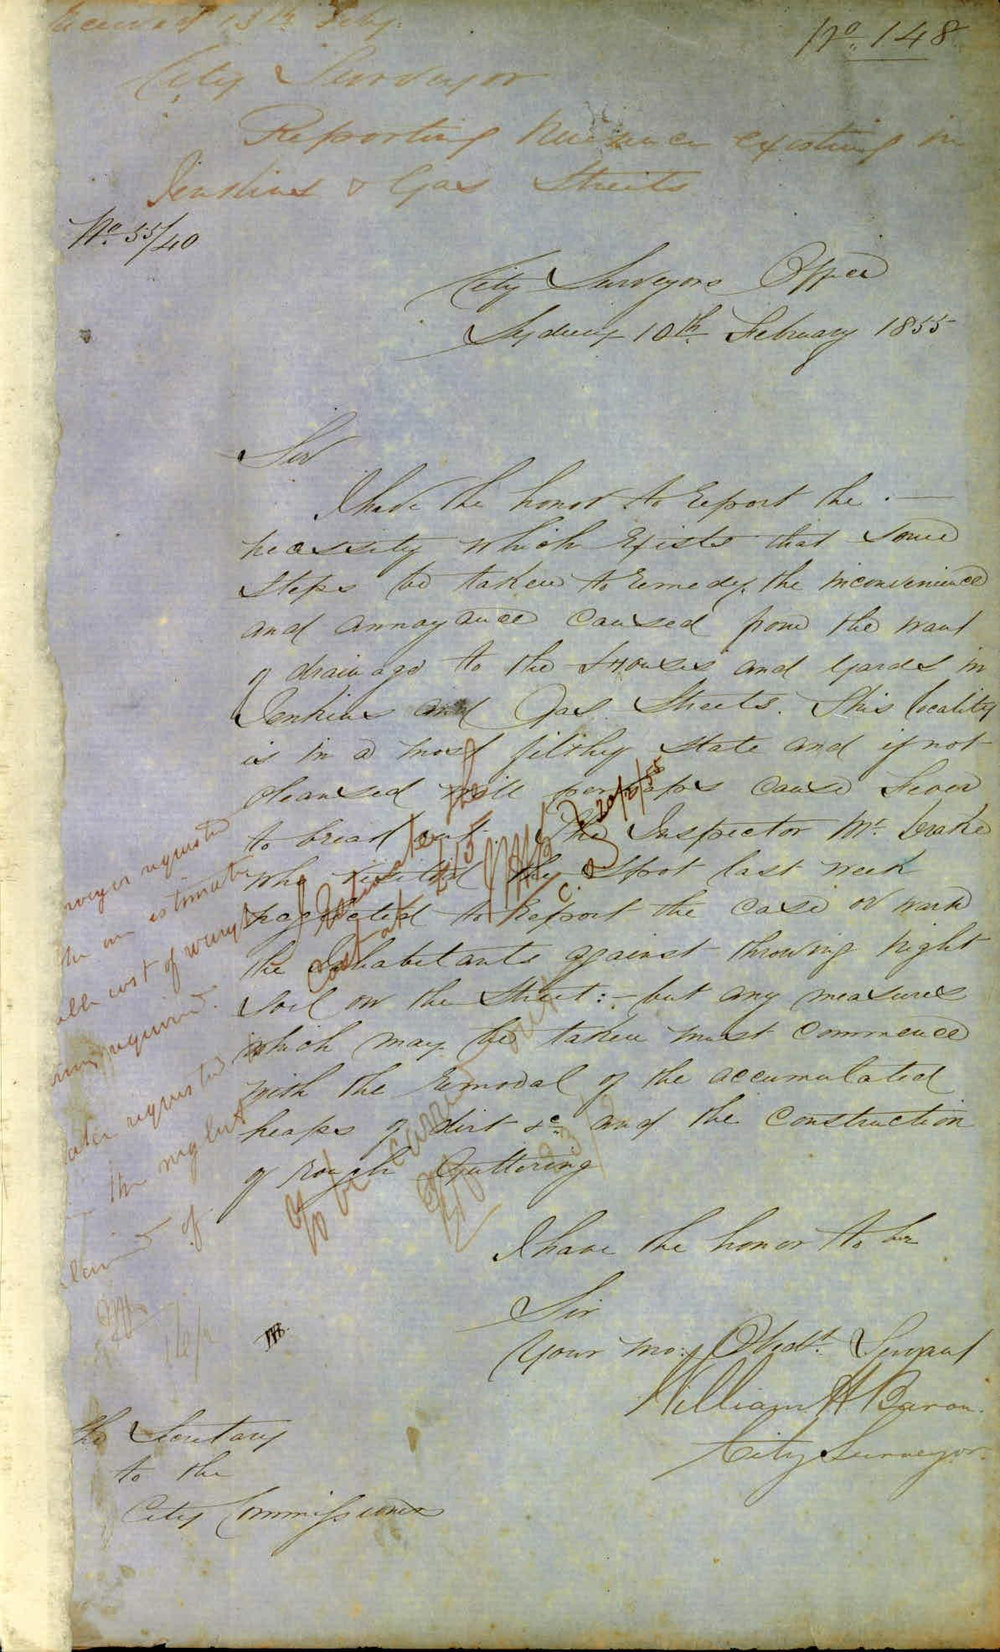 Received 13th Feby.
No. 148
City Surveyor
Reporting Nuisance existing in
Jenkins & Gas Streets
No. 55/40
City Surveyors Office
Sydney 10th February 1855
Sir
I have the honor to report the
necessity which exists that some
steps be taken to remedy the inconvenience
and annoyance caused from the want
of drainage to the Houses and Yards in
Jenkins and Gas Streets. This locality
is in a most filthy state and if not
cleansed will perhaps cause Fever
to break out. The Inspector Mr.
who visited the Spot last week
requested to Report the case or warn
the Inhabitants against throwing night
Soil on the Street: – but any measures
which may be taken must commence
with the removal of the accumulated
heaps of dirt &c and the construction
of rough Guttering
I have the honor to be
Sir
Your mo. Obedt. Servant
William H Baron
City Surveyor
The Secretary
to the
City Commissioners
requested
estimate
cost of
required.
requested to
the night
of
I estimate the
cost at
20/2/55
To be carried out